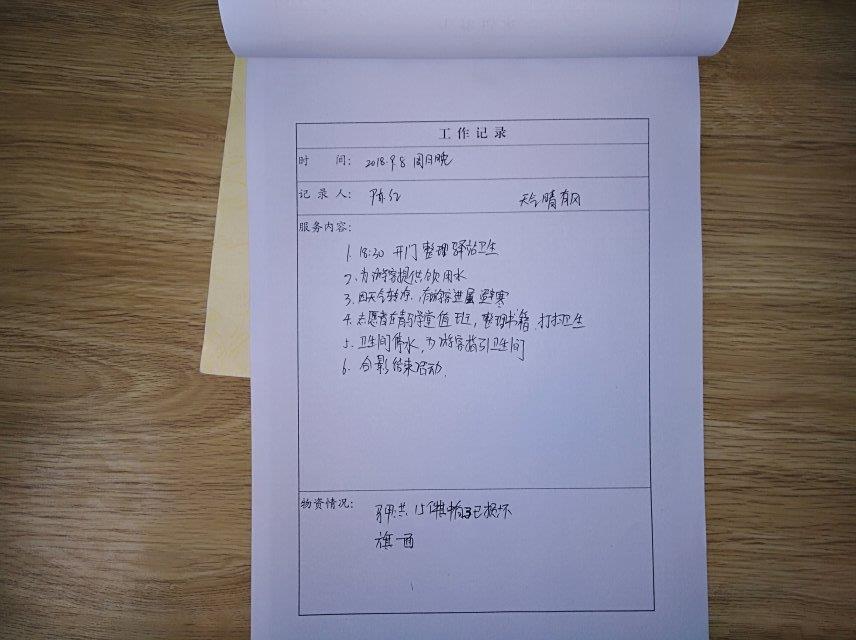 工作记录
时 间: 2018.9.8 周日晚
记录人: 陈红 天气晴有风
服务内容:
1. 18:30 开门整理驿站卫生
2. 为游客提供饮用水
3. 因天气转凉,有游客进屋避寒
4. 志愿者在青与学堂值班,整理书籍,打扫卫生
5. 卫生间停水,为游客指引卫生间
6. 合影结束活动.
物资情况:
马甲共15件其中3已损坏
旗一面